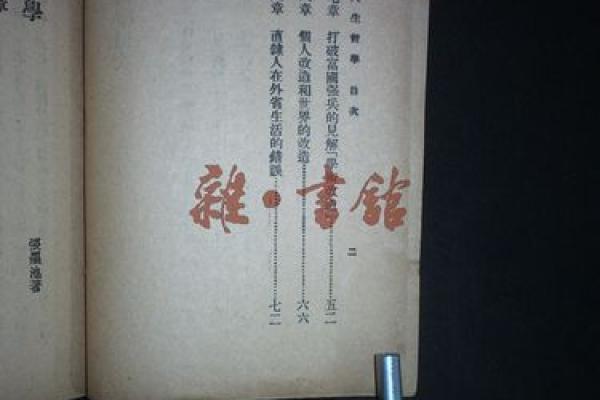 人生哲學 目次
二
章 打破富國强兵的見解「學……五二
章 個人改造和世界的改造……六六
章 直隸人在外省生活的錯誤……七二
學
章
池著
雜·書館